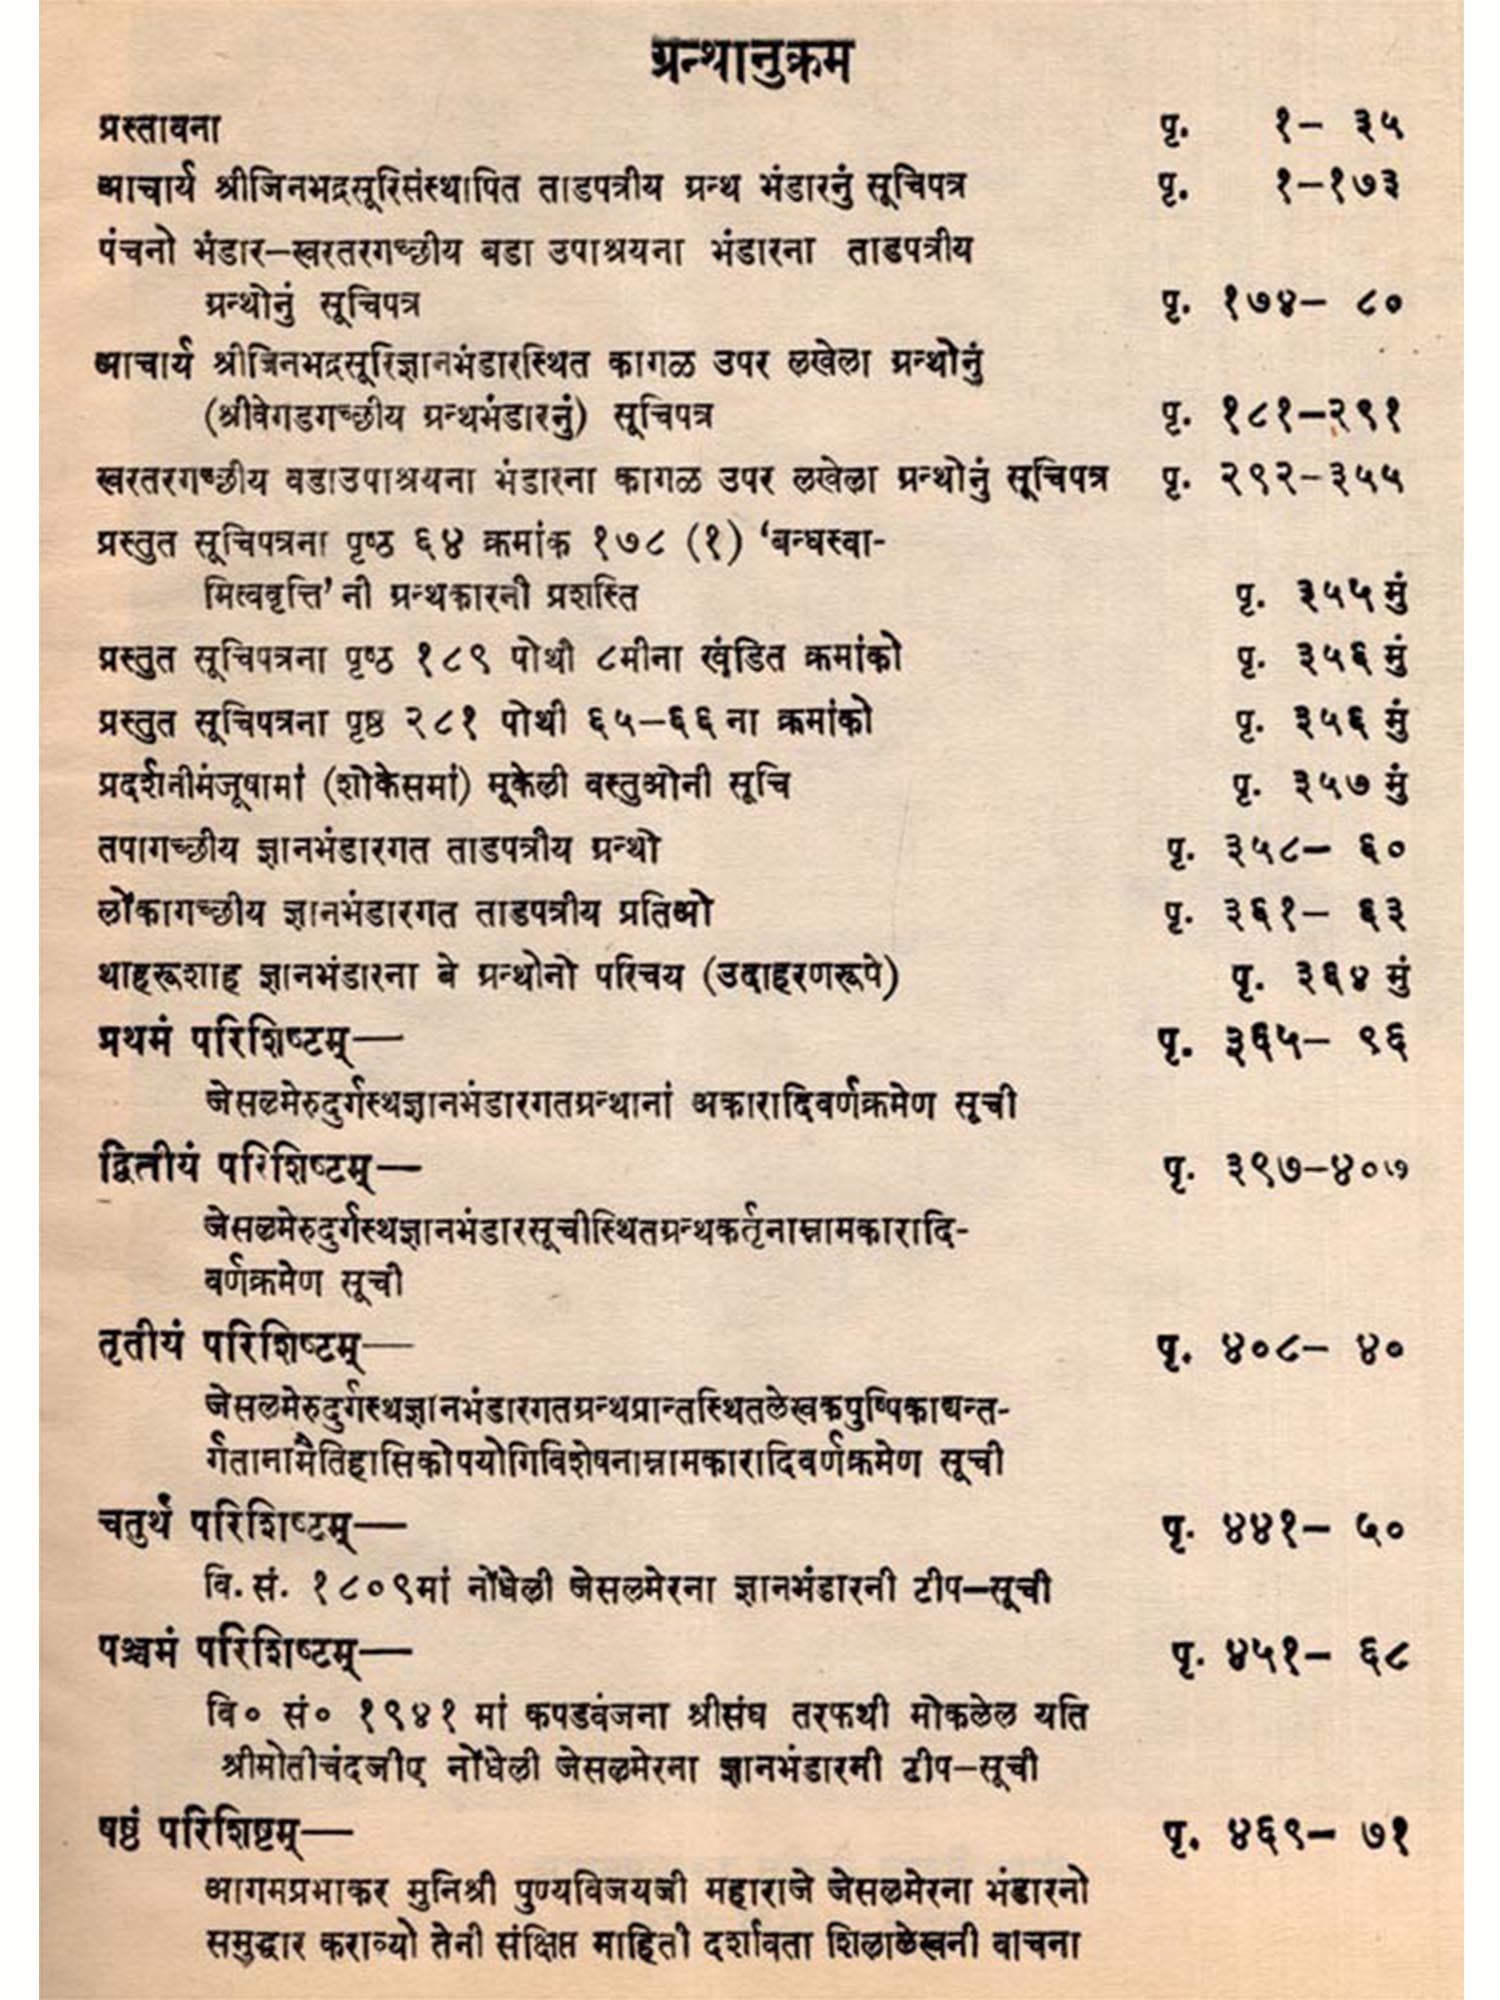 ग्रन्थानुक्रम
प्रस्तावना पृ. १– ३५
आचार्य श्रीजिनभद्रसूरिसंस्थापित ताडपत्रीय ग्रन्थ भंडारनुं सूचिपत्र पृ. १–१७३
पंचनो भंडार–खरतरगच्छीय बडा उपाश्रयना भंडारना ताडपत्रीय
ग्रन्थोनुं सूचिपत्र पृ. १७४– ८०
आचार्य श्रीजिनभद्रसूरिज्ञानभंडारस्थित कागळ उपर लखेला ग्रन्थोनुं
(श्रीवेगडगच्छीय ग्रन्थभंडारनुं) सूचिपत्र पृ. १८१–२९१
खरतरगच्छीय बडाउपाश्रयना भंडारना कागळ उपर लखेला ग्रन्थोनुं सूचिपत्र पृ. २९२–३५५
प्रस्तुत सूचिपत्रना पृष्ठ ६४ क्रमांक १७८ (१) ‘बन्धस्वा-
मित्ववृत्ति’ नी ग्रन्थकारनी प्रशस्ति पृ. ३५५ मुं
प्रस्तुत सूचिपत्रना पृष्ठ १८९ पोथी ८मीना खंडित क्रमांको पृ. ३५६ मुं
प्रस्तुत सूचिपत्रना पृष्ठ २८१ पोथी ६५–६६ ना क्रमांको पृ. ३५६ मुं
प्रदर्शनीमंजूषामां (शोकेसमां) मूकेली वस्तुओनी सूचि पृ. ३५७ मुं
तपागच्छीय ज्ञानभंडारगत ताडपत्रीय ग्रन्थो पृ. ३५८– ६०
लोंकागच्छीय ज्ञानभंडारगत ताडपत्रीय प्रतिओ पृ. ३६१– ६३
थाहरूशाह ज्ञानभंडारना बे ग्रन्थोनो परिचय (उदाहरणरूपे) पृ. ३६४ मुं
प्रथमं परिशिष्टम्— पृ. ३६५– ९६
जेसलमेरुदुर्गस्थज्ञानभंडारगतग्रन्थानां अकारादिवर्णक्रमेण सूची
द्वितीयं परिशिष्टम्— पृ. ३९७–४०७
जेसलमेरुदुर्गस्थज्ञानभंडारसूचीस्थितग्रन्थकर्तृनाम्नामकारादि-
वर्णक्रमेण सूची
तृतीयं परिशिष्टम्— पृ. ४०८– ४०
जेसलमेरुदुर्गस्थज्ञानभंडारगतग्रन्थप्रान्तस्थितलेखकपुष्पिकाद्यन्त-
र्गतानामैतिहासिकोपयोगिविशेषनाम्नामकारादिवर्णक्रमेण सूची
चतुर्थं परिशिष्टम्— पृ. ४४१– ५०
वि. सं. १८०९मां नोंधेली जेसलमेरना ज्ञानभंडारनी टीप–सूची
पञ्चमं परिशिष्टम्— पृ. ४५१– ६८
वि० सं० १९४१ मां कपडवंजना श्रीसंघ तरफथी मोकलेल यति
श्रीमोतीचंदजीए नोंधेली जेसलमेरना ज्ञानभंडारनी टीप–सूची
षष्ठं परिशिष्टम्— पृ. ४६९– ७१
आगमप्रभाकर मुनिश्री पुण्यविजयजी महाराजे जेसलमेरना भंडारनो
समुद्धार कराव्यो तेनी संक्षिप्त माहिती दर्शावता शिलालेखनी वाचना